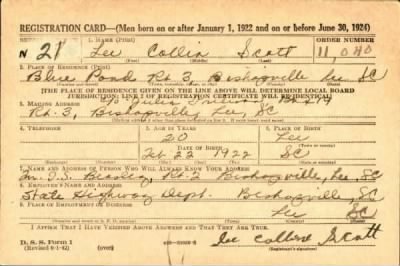 REGISTRATION CARD—(Men born on or after January 1, 1922 and on or before June 30, 1924)
SERIAL NUMBER 1. NAME (Print) ORDER NUMBER
N 21 Lee Collin Scott 11,080
(First) (Middle) (Last)
2. PLACE OF RESIDENCE (Print)
Blue Pond Rt 3, Bishopville Lee SC
[THE PLACE OF RESIDENCE GIVEN ON THE LINE ABOVE WILL DETERMINE LOCAL BOARD
JURISDICTION; LINE 2 OF REGISTRATION CERTIFICATE WILL BE IDENTICAL]
3. MAILING ADDRESS
c/o Julia
Rt. 3, Bishopville Lee, SC
4. TELEPHONE 5. AGE IN YEARS 6. PLACE OF BIRTH
20 Lee
DATE OF BIRTH
Feb 22 1922 SC
7. NAME AND ADDRESS OF PERSON WHO WILL ALWAYS KNOW YOUR ADDRESS
Rt-2 Bishopville, Lee, SC
8. EMPLOYER'S NAME AND ADDRESS
State Highway Dept. Bishopville, SC
9. PLACE OF EMPLOYMENT OR BUSINESS
Lee SC
I AFFIRM THAT I HAVE VERIFIED ABOVE ANSWERS AND THAT THEY ARE TRUE.
D. S. S. Form 1
(Revised 6-1-42) (over)
Scott
(Registrant's signature)